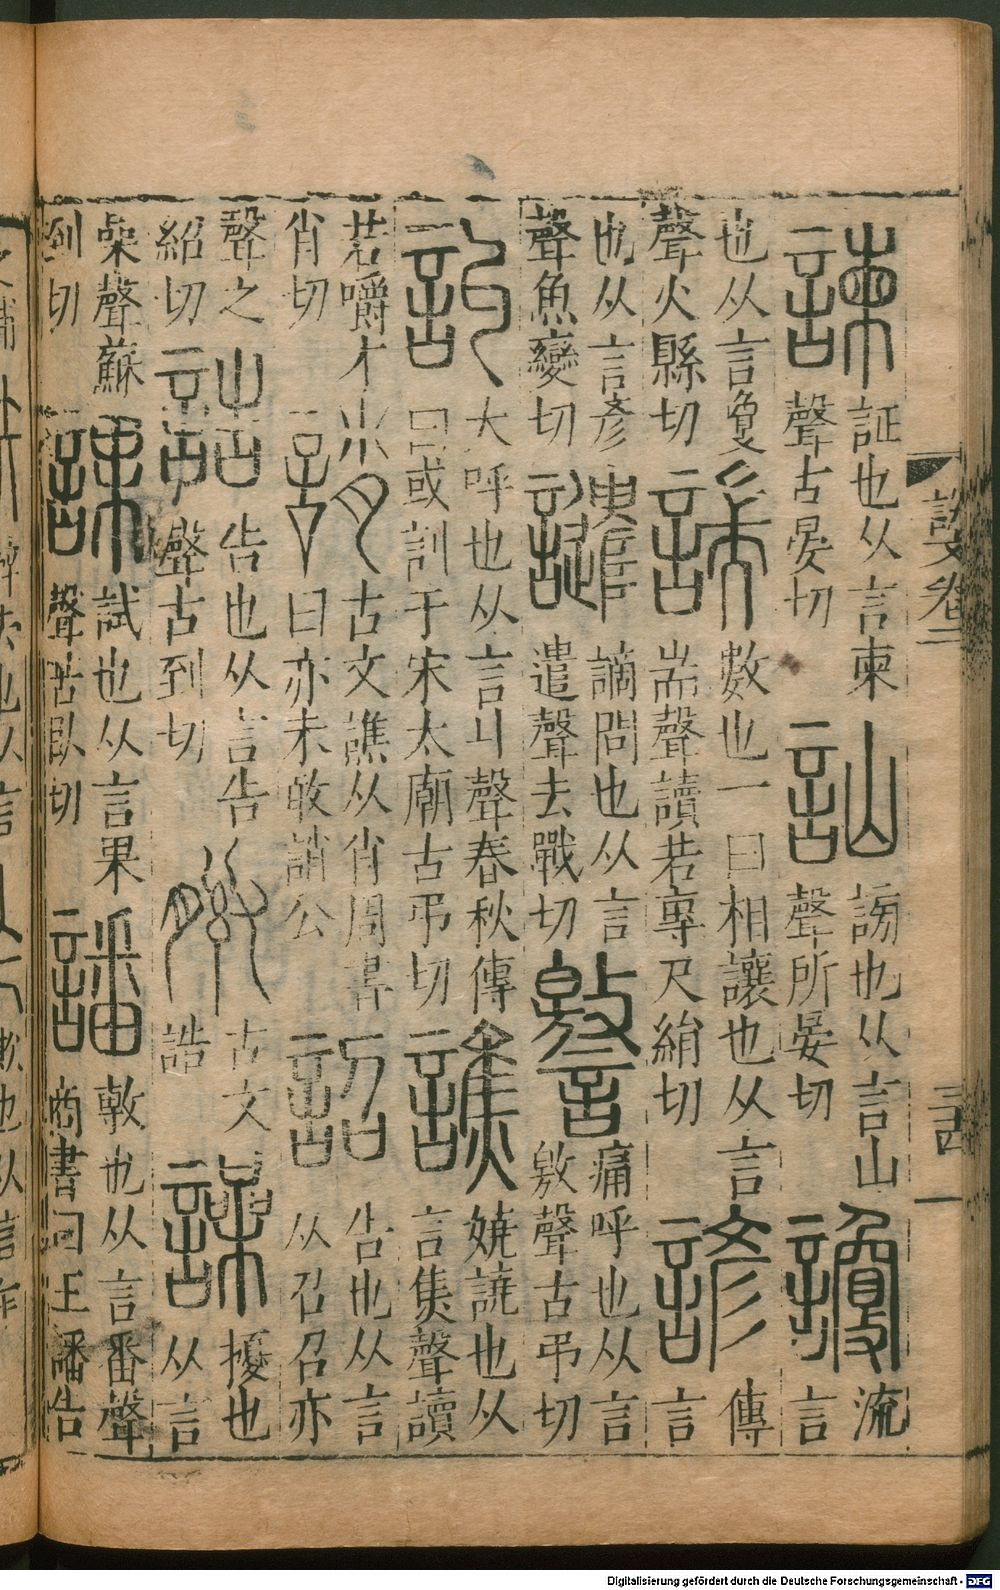 諫
証也从言柬
聲古晏切
訕
謗也从言山
聲所晏切
讂
流
言
也从言敻
聲火縣切
諯
數也一曰相讓也从言
耑聲讀若專尺絹切
諺
傳
言
也从言彥
聲魚變切
譴
謫問也从言
遣聲去戰切
譥
痛呼也从言
敫聲古弔切
訆
大呼也从言丩聲春秋傳
曰或訆于宋太廟古弔切
譙
嬈譊也从
言焦聲讀
若嚼才
肖切
誚
古文譙从肖周書
曰亦未敢誚公
詔
告也从言
从召召亦
聲之
紹切
誥
告也从言告
聲古到切
古文
誥
譟
擾也
从言
喿聲蘇
到切
課
試也从言果
聲苦臥切
譒
敷也从言番聲
商書曰王譒告
說文卷三
Digitalisierung gefördert durch die Deutsche Forschungsgemeinschaft - DFG